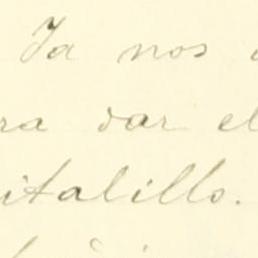 Ya nos
ra dar el
italillo.